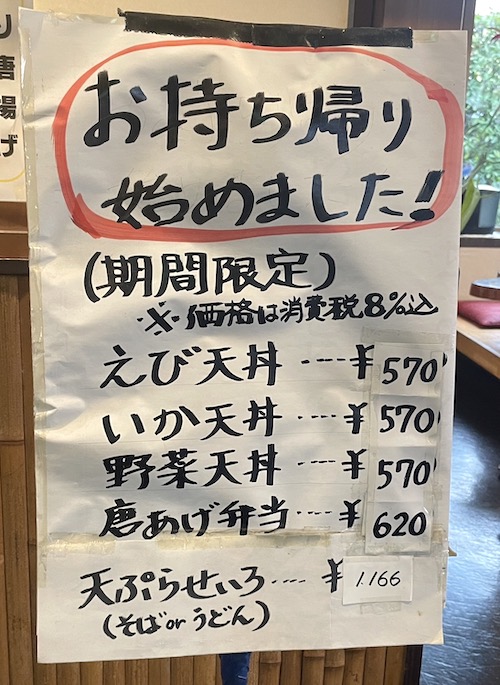 お持ち帰り
始めました!
(期間限定)
※価格は消費税8%込
えび天丼····¥570
いか天丼····¥570
野菜天丼····¥570
唐あげ弁当····¥620
天ぷらせいろ····¥1.166
(そばorうどん)
り
唐
揚
げ